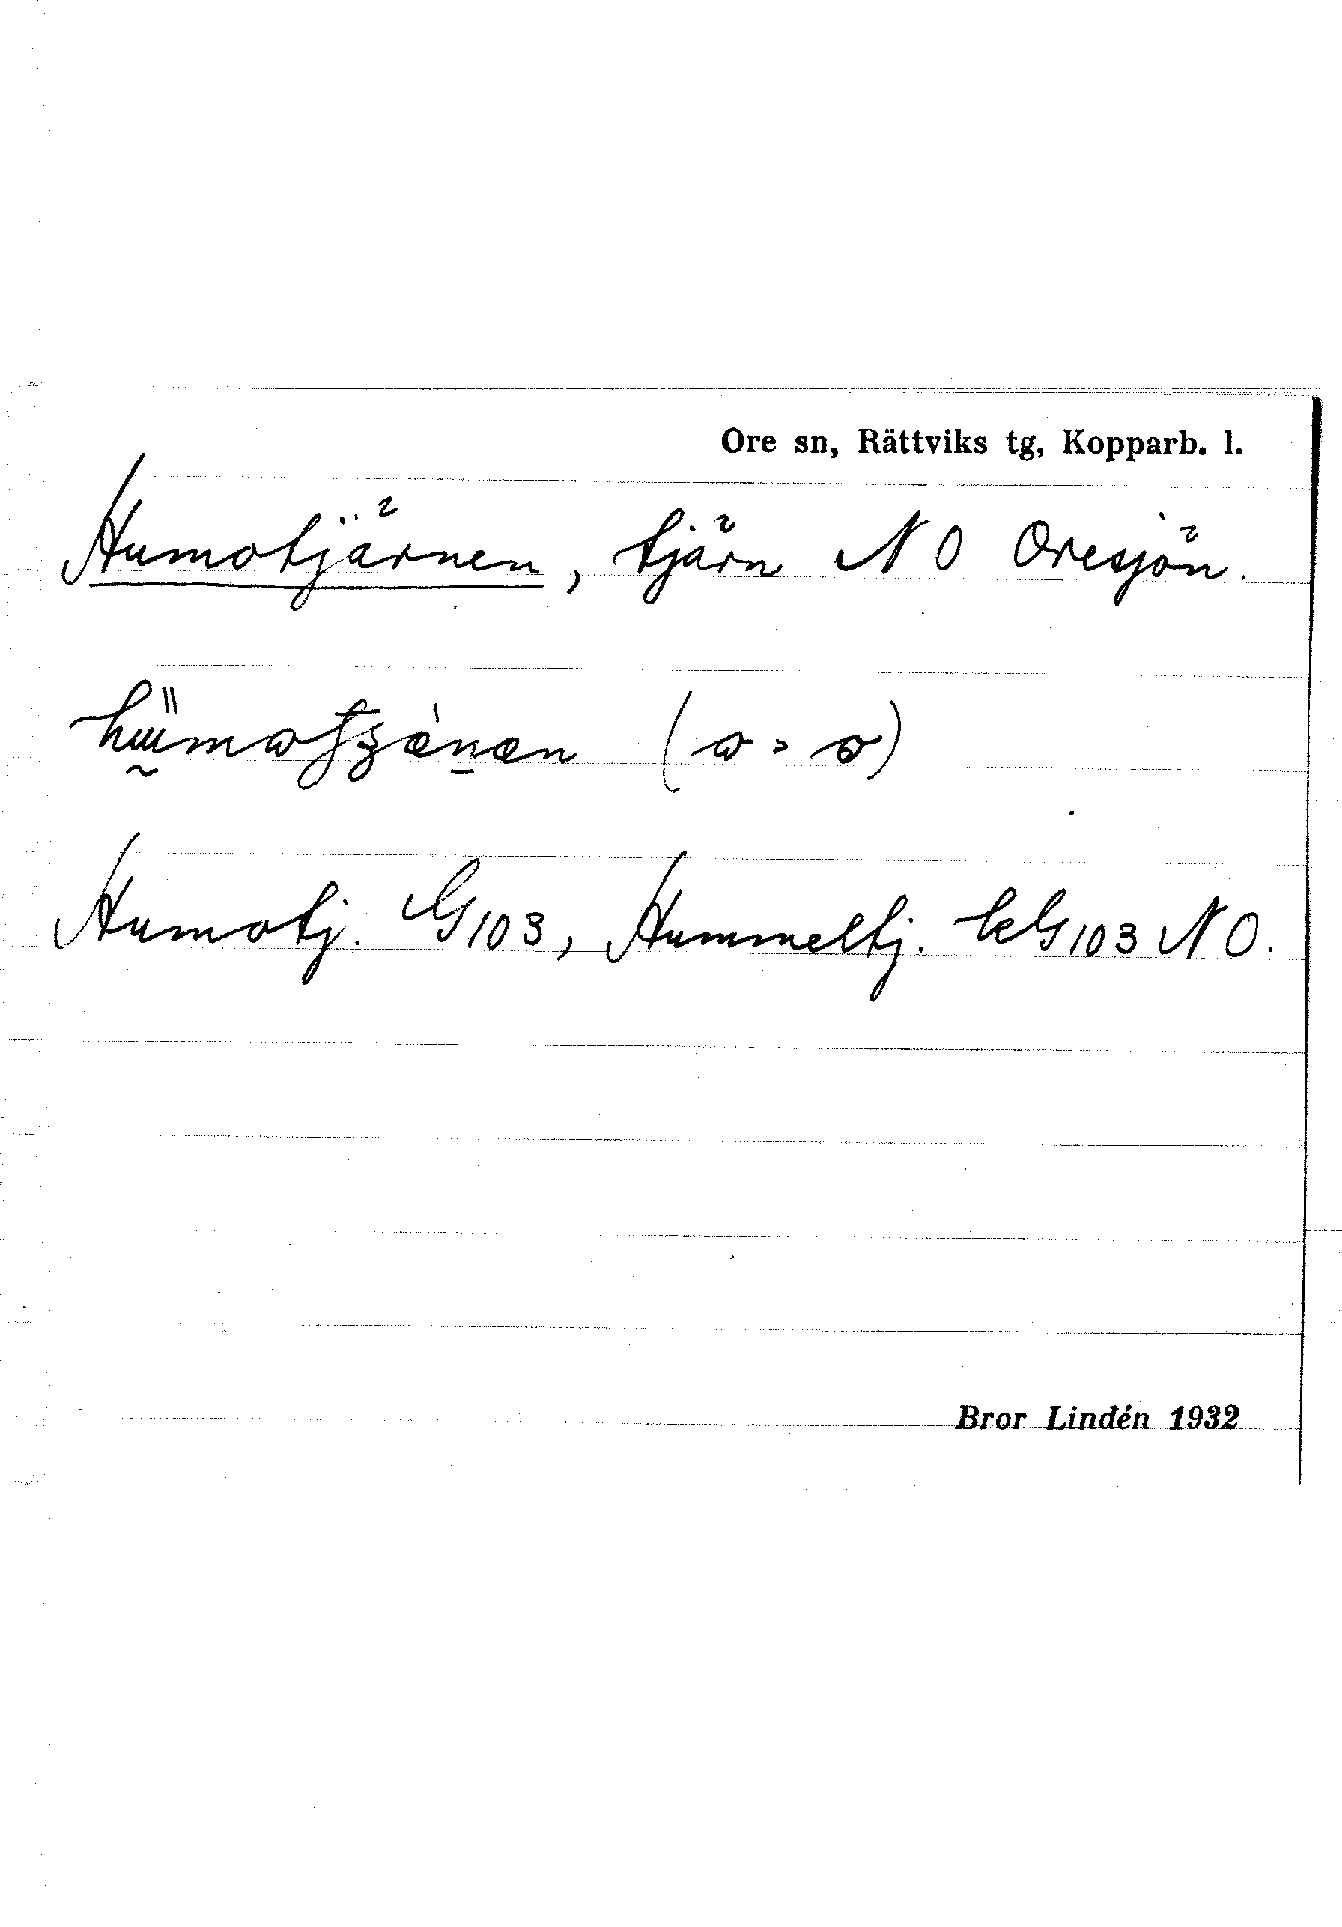 Ore sn, Rättviks tg, Kopparb. l.
Humotjärnen, tjärn N O Oresjön.
Humotj. G103, Hummeltj. kG103 N O.
Bror Lindén 1932